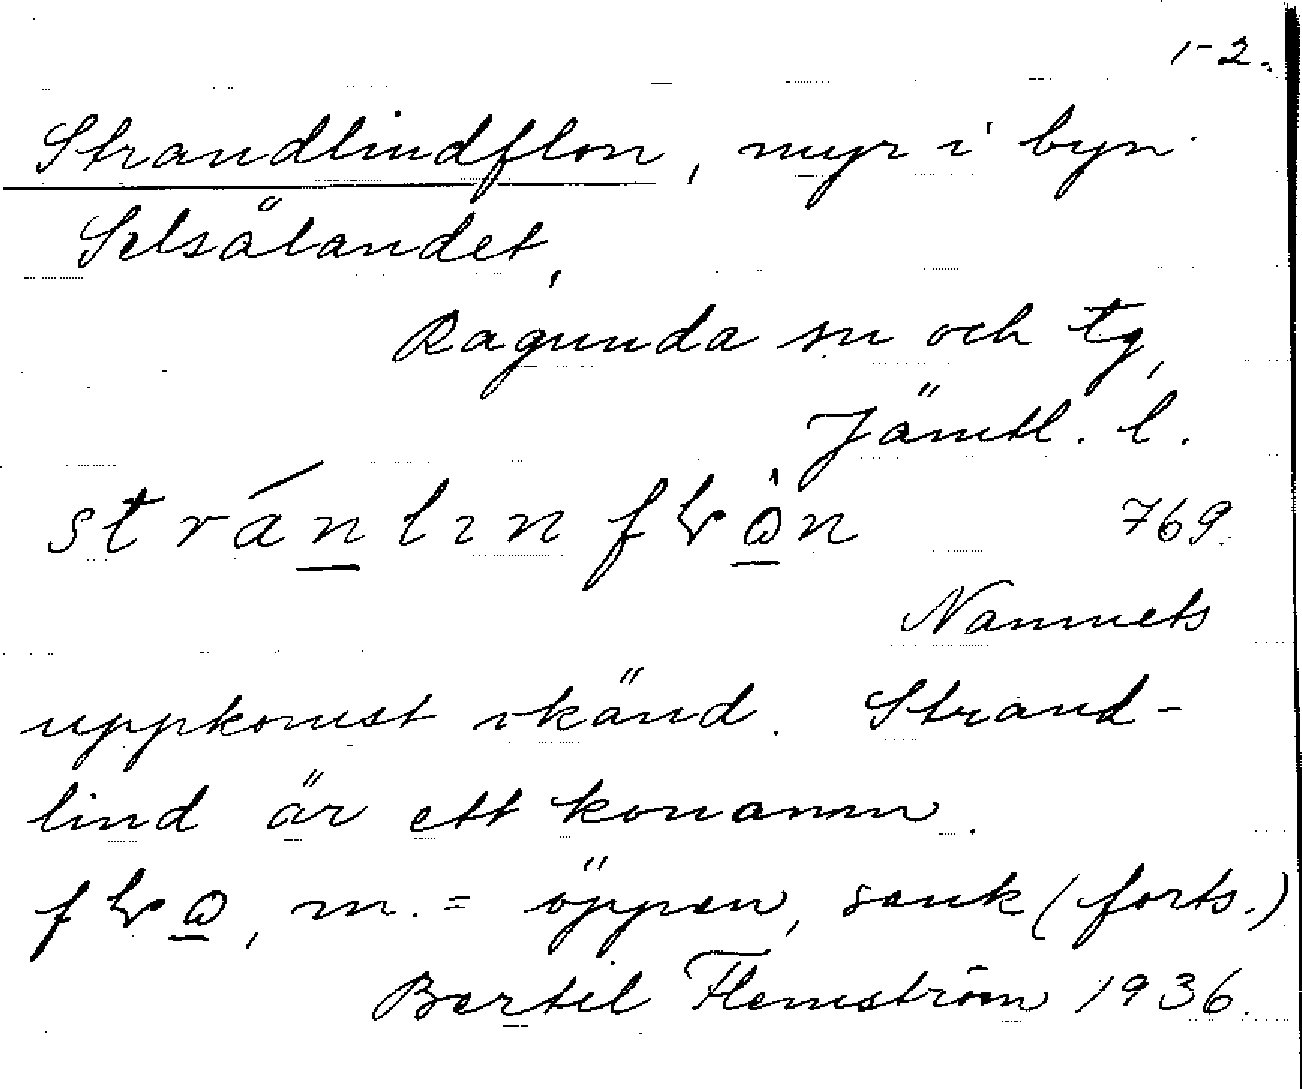 1-2.
Strandlindflon, myr i byn
Selsålandet,
Ragunda sn och tg,
Jämtl. l.
769
Namnets
uppkomst okänd. Strand-
lind är ett konamn.
m. = öppen, sank (forts.)
Bertil Flemström 1936.